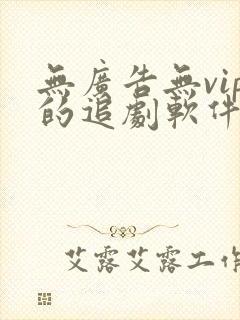 無廣告無vip
的追劇軟件
艾露艾露工作